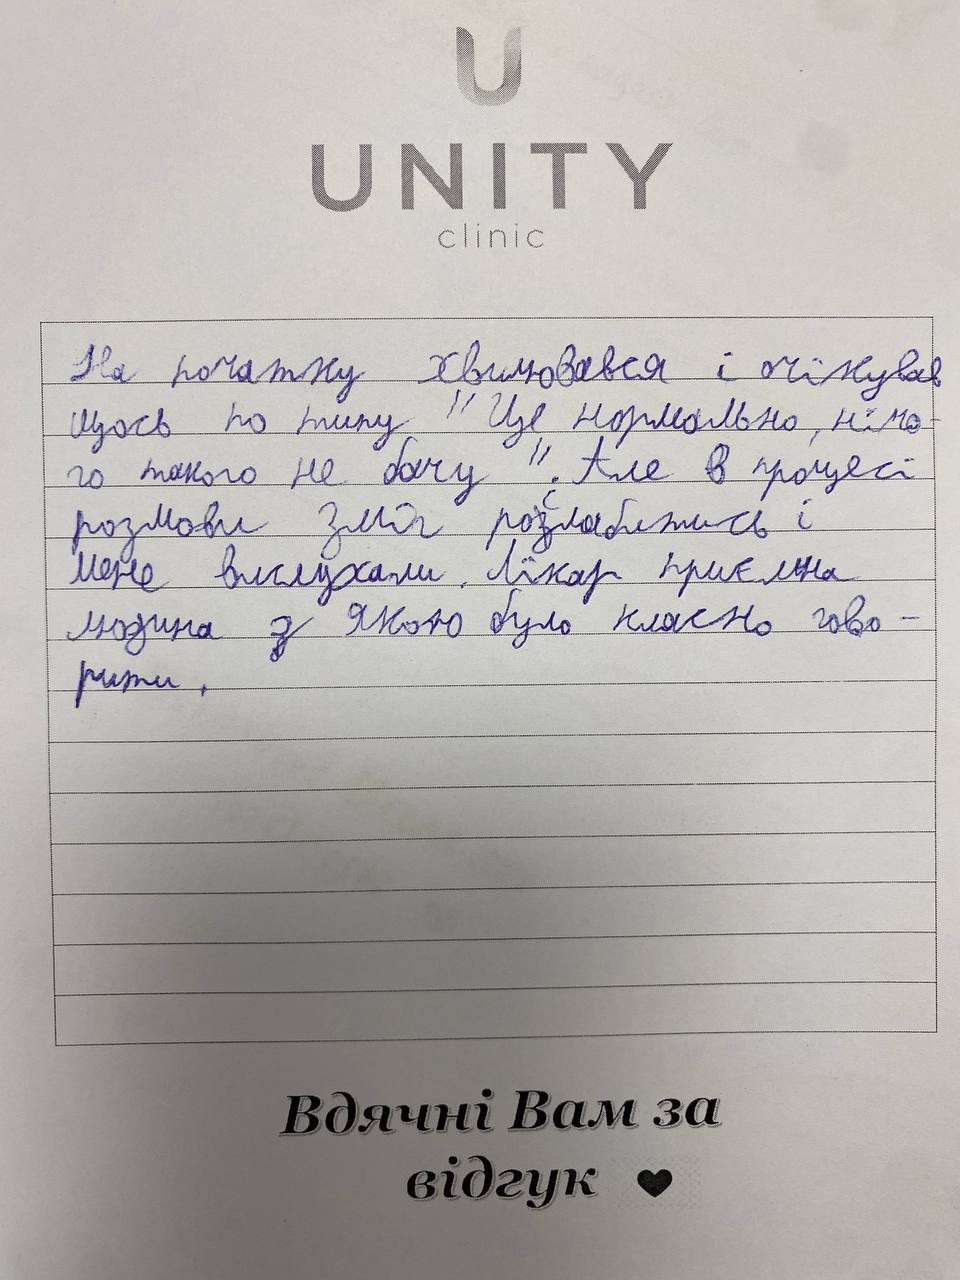 U
UNITY
clinic
На початку хвилювався і очікував
щось по типу "Це нормально, нічо-
го такого не бачу". Але в процесі
розмови зміг розслабитись і
мене вислухали. Лікар приємна
людина з якою було класно гово-
рити.
Вдячні Вам за
відгук ♥